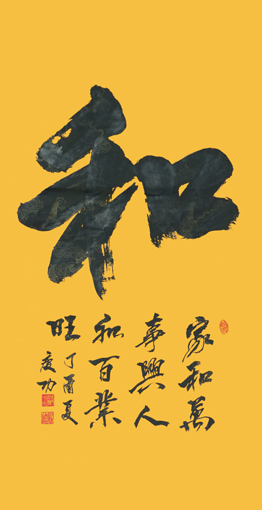 和
家和萬
事興人
和百業
旺丁酉夏
慶功